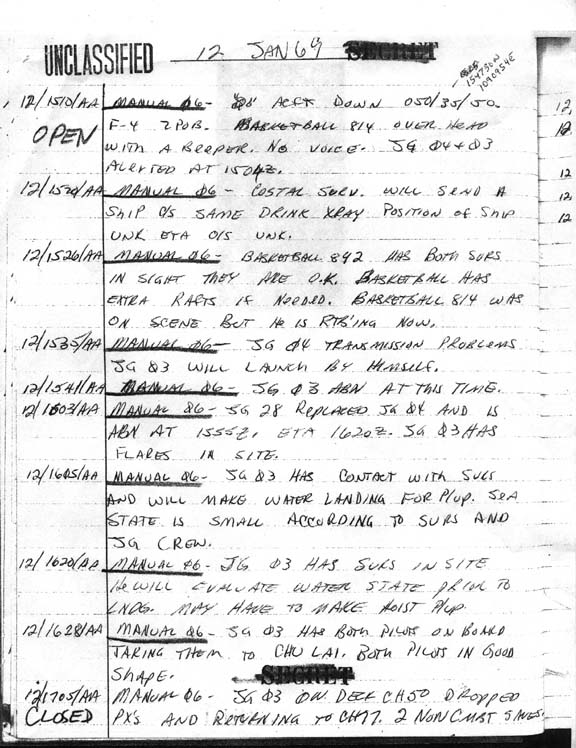 UNCLASSIFIED 12 JAN 69 SECRET
154730N
1090954E
12/1510/AA MANUAL Ø6- ACFT DOWN 050/35/50. 12,
OPEN F-4 2POB. BASKETBALL 814 OVER HEAD 12
WITH A BEEPER. NO VOICE. JG Ø4+Ø3
ALERTED AT 1504Z. 12
12/1520/AA MANUAL Ø6- COSTAL SURV. WILL SEND A 12,
SHIP C/S SAME DRINK XRAY POSITION OF SHIP 12
UNK ETA O/S UNK.
12/1526/AA MANUAL Ø6- BASKETBALL 842 HAS BOTH SURS
IN SIGHT THEY ARE O.K. BASKETBALL HAS
EXTRA RAFTS IF NEEDED. BASKETBALL 814 WAS
ON SCENE BUT HE IS RTB'ING NOW.
12/1535/AA MANUAL Ø6- JG Ø4 TRANSMISSION PROBLEMS
JG Ø3 WILL LAUNCH BY HIMSELF.
12/1541/AA MANUAL Ø6- JG Ø3 ABN AT THIS TIME.
12/1603/AA MANUAL Ø6- JG 28 REPLACED JG Ø4 AND IS
ABN AT 1555Z, ETA 1620Z. JG Ø3 HAS
FLARES IN SITE.
12/1605/AA MANUAL Ø6- JG Ø3 HAS CONTACT WITH SURS
AND WILL MAKE WATER LANDING FOR P/UP. SEA
STATE IS SMALL ACCORDING TO SURS AND
JG CREW.
12/1620/AA MANUAL Ø6- JG Ø3 HAS SURS IN SITE
HE WILL EVALUATE WATER STATE PRIOR TO
LNDG. MAY HAVE TO MAKE HOIST P/UP.
12/1628/AA MANUAL Ø6- JG Ø3 HAS BOTH PILOTS ON BOARD
TAKING THEM TO CHU LAI. BOTH PILOTS IN GOOD
SHAPE. SECRET
12/1705/AA MANUAL Ø6- JG Ø3 ON DECK CH50 DROPPED
CLOSED PXS AND RETURNING TO CH77. 2 NON CMBT SAVES.